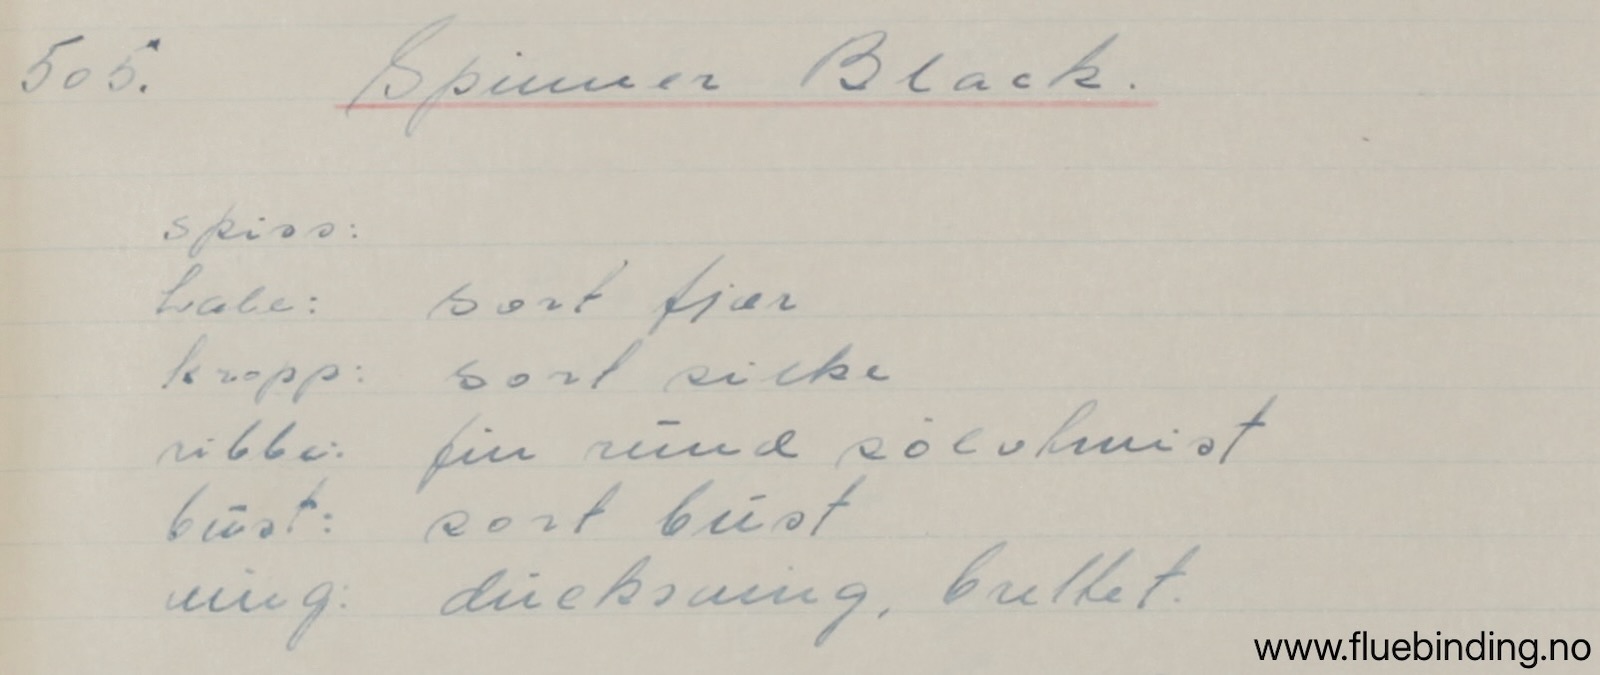 505. Spinner Black.
spiss:
hale: sort fjær
kropp: sort silke
ribbe: fin rund sölvtwist
büst: sort büst
ving: ducksving, brettet.
www.fluebinding.no